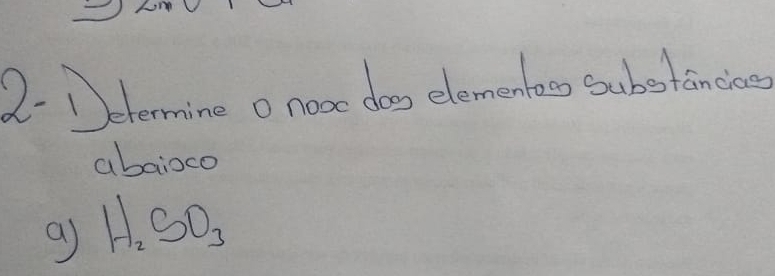 2- Determine o nox dos elementos substâncias
abaixo
a) H₂SO₃